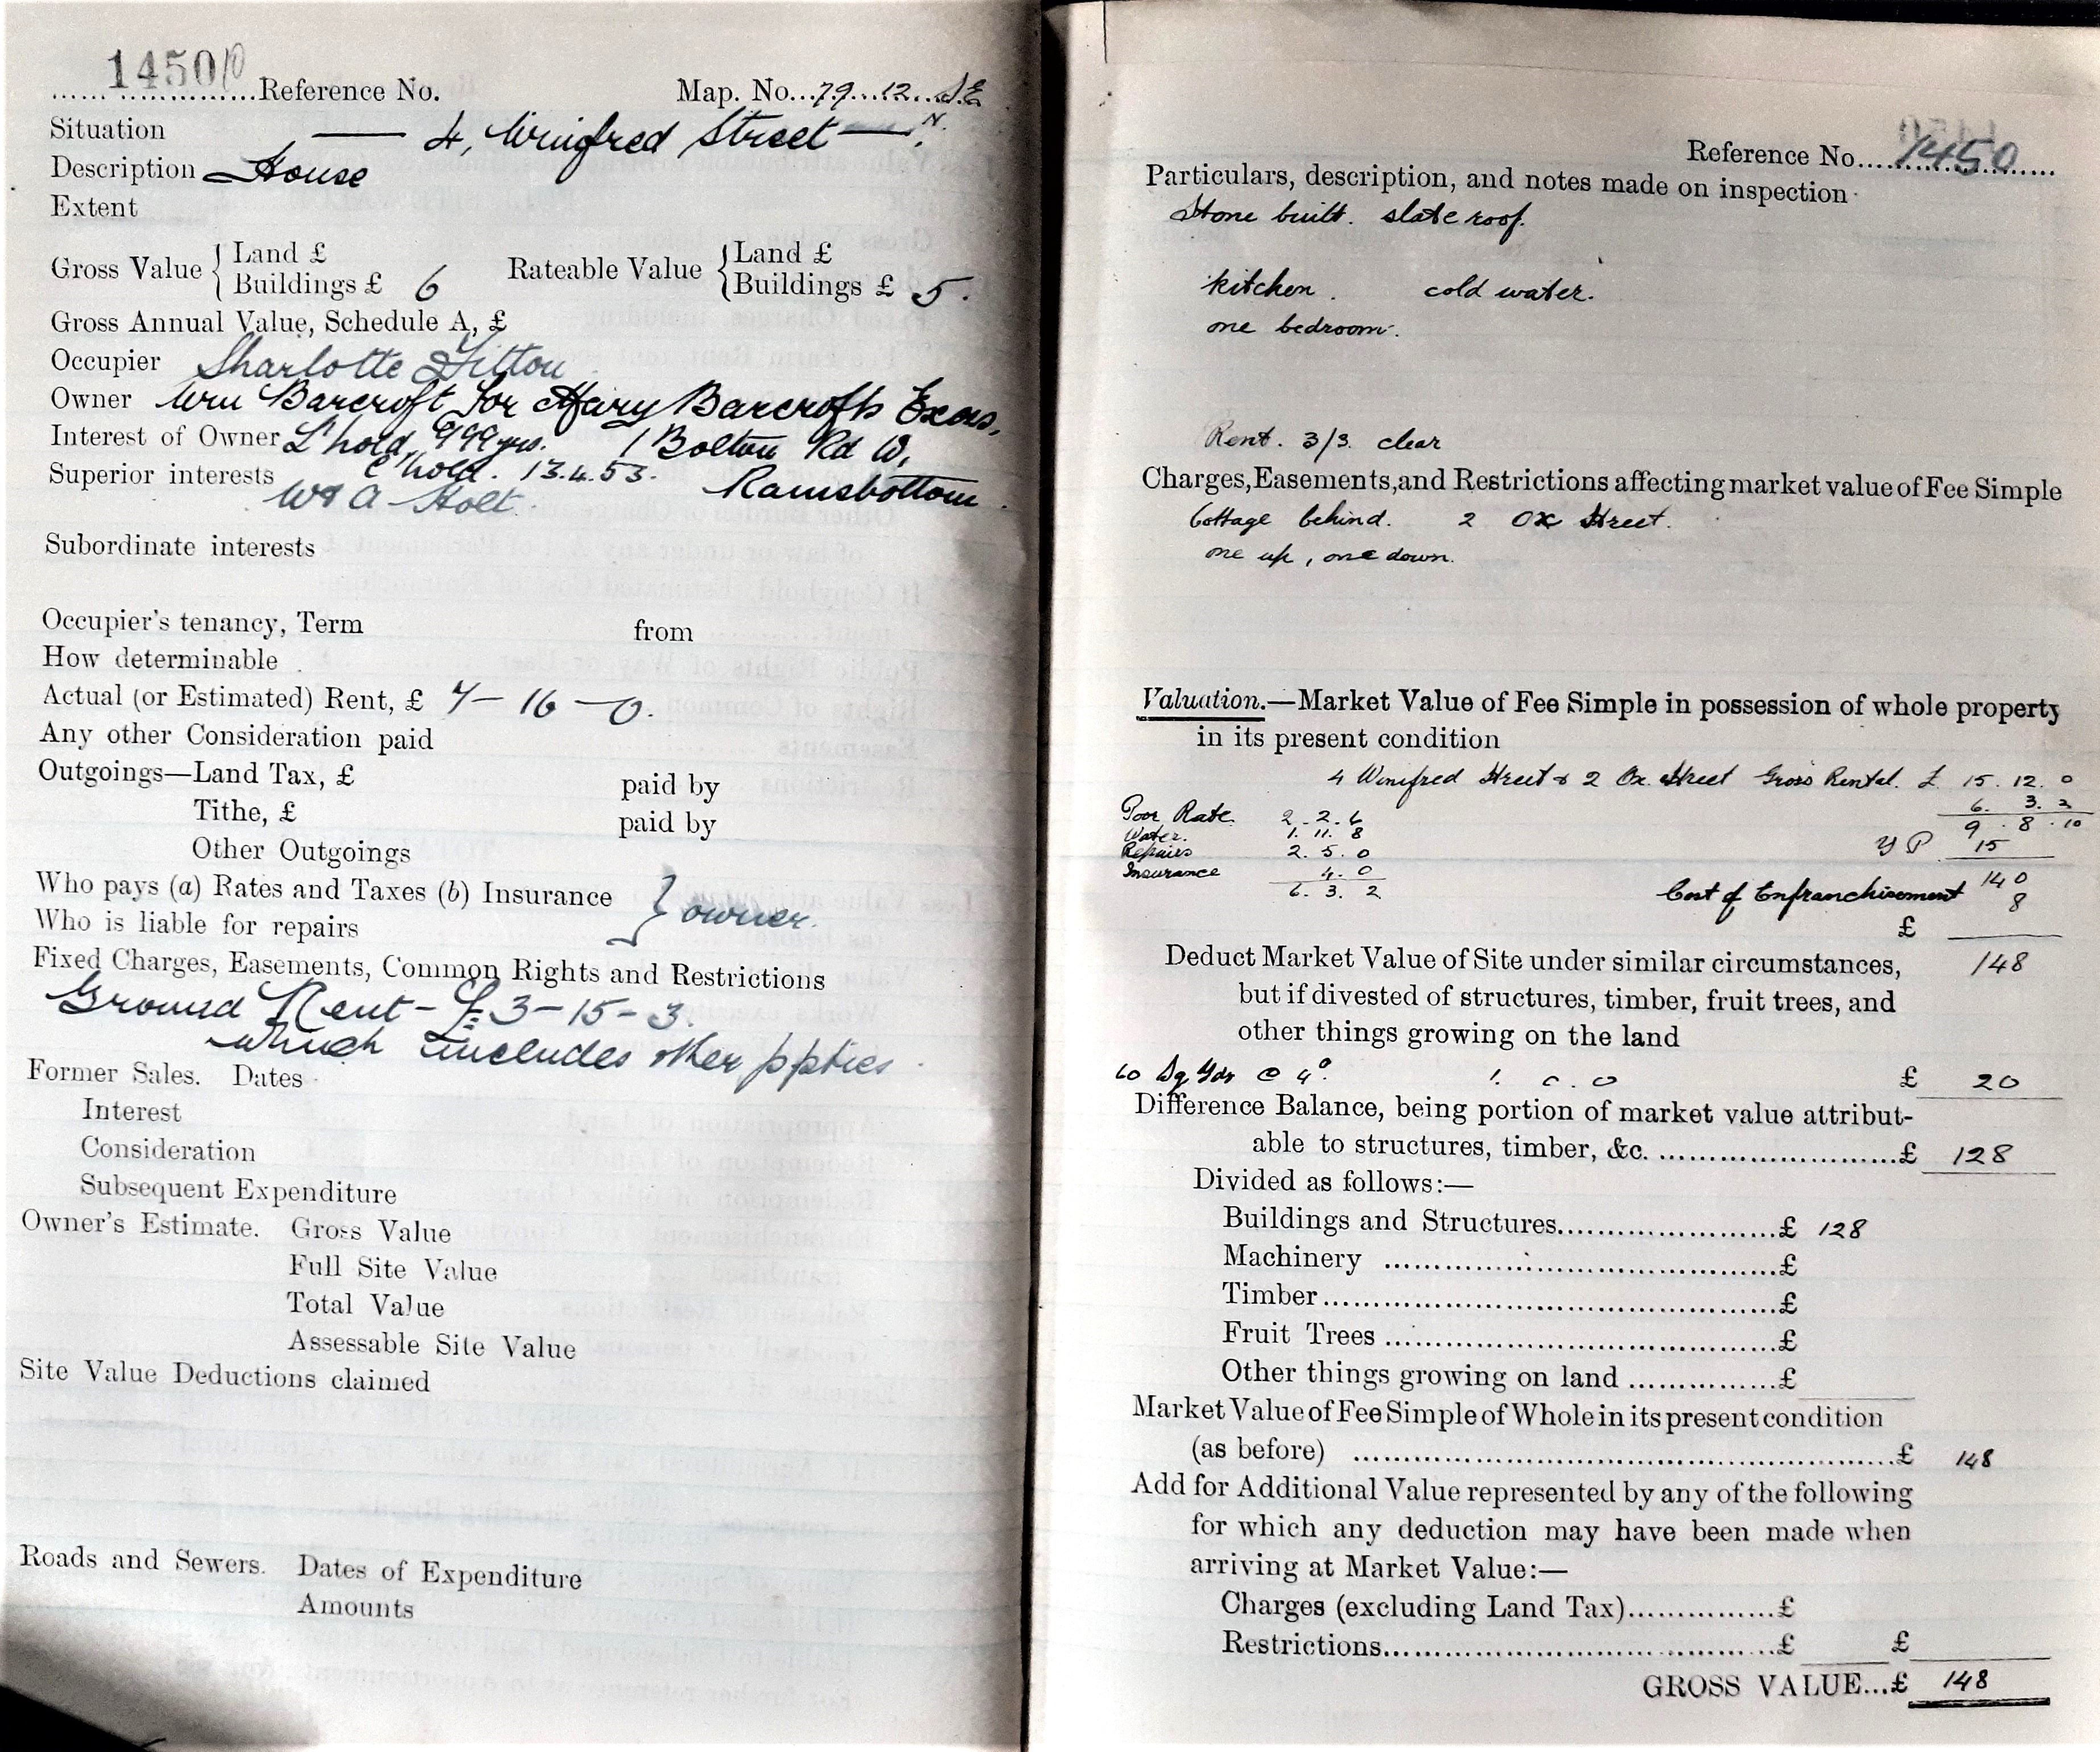 1450
Reference No. Map. No...79...12...S.E
Situation — 4, Winifred Street — N.
Description House
Extent
Gross Value { Land £
Buildings £ 6
Rateable Value { Land £
Buildings £ 5.
Gross Annual Value, Schedule A, £
Occupier Sharlotte Fitton
Owner Wm Barcroft for Mary Barcrofts Exors,
Interest of Owner L'hold, 999 yrs. 1 Bolton Rd W,
Superior interests C'hold. 13.4.53. Ramsbottom
W & A Holt.
Subordinate interests
Occupier's tenancy, Term from
How determinable
Actual (or Estimated) Rent, £ 7–16–0.
Any other Consideration paid
Outgoings—Land Tax, £ paid by
Tithe, £ paid by
Other Outgoings
Who pays (a) Rates and Taxes (b) Insurance } owner.
Who is liable for repairs
Fixed Charges, Easements, Common Rights and Restrictions
Ground Rent - £3-15-3.
which includes other ppties
Former Sales. Dates
Interest
Consideration
Subsequent Expenditure
Owner's Estimate. Gross Value
Full Site Value
Total Value
Assessable Site Value
Site Value Deductions claimed
Roads and Sewers. Dates of Expenditure
Amounts
Reference No. 1450
Particulars, description, and notes made on inspection
Stone built. slate roof.
kitchen. cold water.
one bedroom.
Rent. 3/3. clear
Charges, Easements, and Restrictions affecting market value of Fee Simple
Cottage behind. 2 Ox Street.
one up, one down.
Valuation.—Market Value of Fee Simple in possession of whole property
in its present condition
4 Winifred Street & 2 Ox. Street Gross Rental. £ 15. 12. 0
6. 3. 2
Poor Rate. 2. 2. 6 9. 8. 10
Water. 1. 11. 8 Y P 15
Repairs 2. 5. 0
Insurance 4. 0 140
6. 3. 2 Cost of Enfranchisement 8
£
Deduct Market Value of Site under similar circumstances, 148
but if divested of structures, timber, fruit trees, and
other things growing on the land
60 Sq Yds @ 4d. 1. 0. 0 £ 20
Difference Balance, being portion of market value attribut-
able to structures, timber, &c. ........................£ 128
Divided as follows:—
Buildings and Structures........................£ 128
Machinery ........................£
Timber........................£
Fruit Trees ........................£
Other things growing on land ...............£
Market Value of Fee Simple of Whole in its present condition
(as before) ........................£ 148
Add for Additional Value represented by any of the following
for which any deduction may have been made when
arriving at Market Value:—
Charges (excluding Land Tax)...............£
Restrictions........................£ £
GROSS VALUE...£ 148